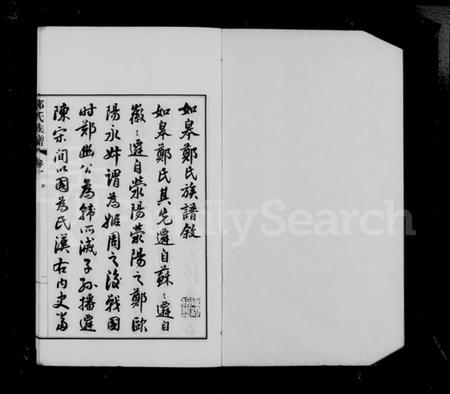 如皋鄭氏族譜敘
如皋鄭氏其先遷自蘇〻遷自
徽〻遷自滎陽滎陽之鄭歐
陽永叔謂為姬周之後戰國
時鄭幽公為韓所滅子孫播遷
陳宋間以國為氏漢右內史當
鄭氏族譜
FamilySearch